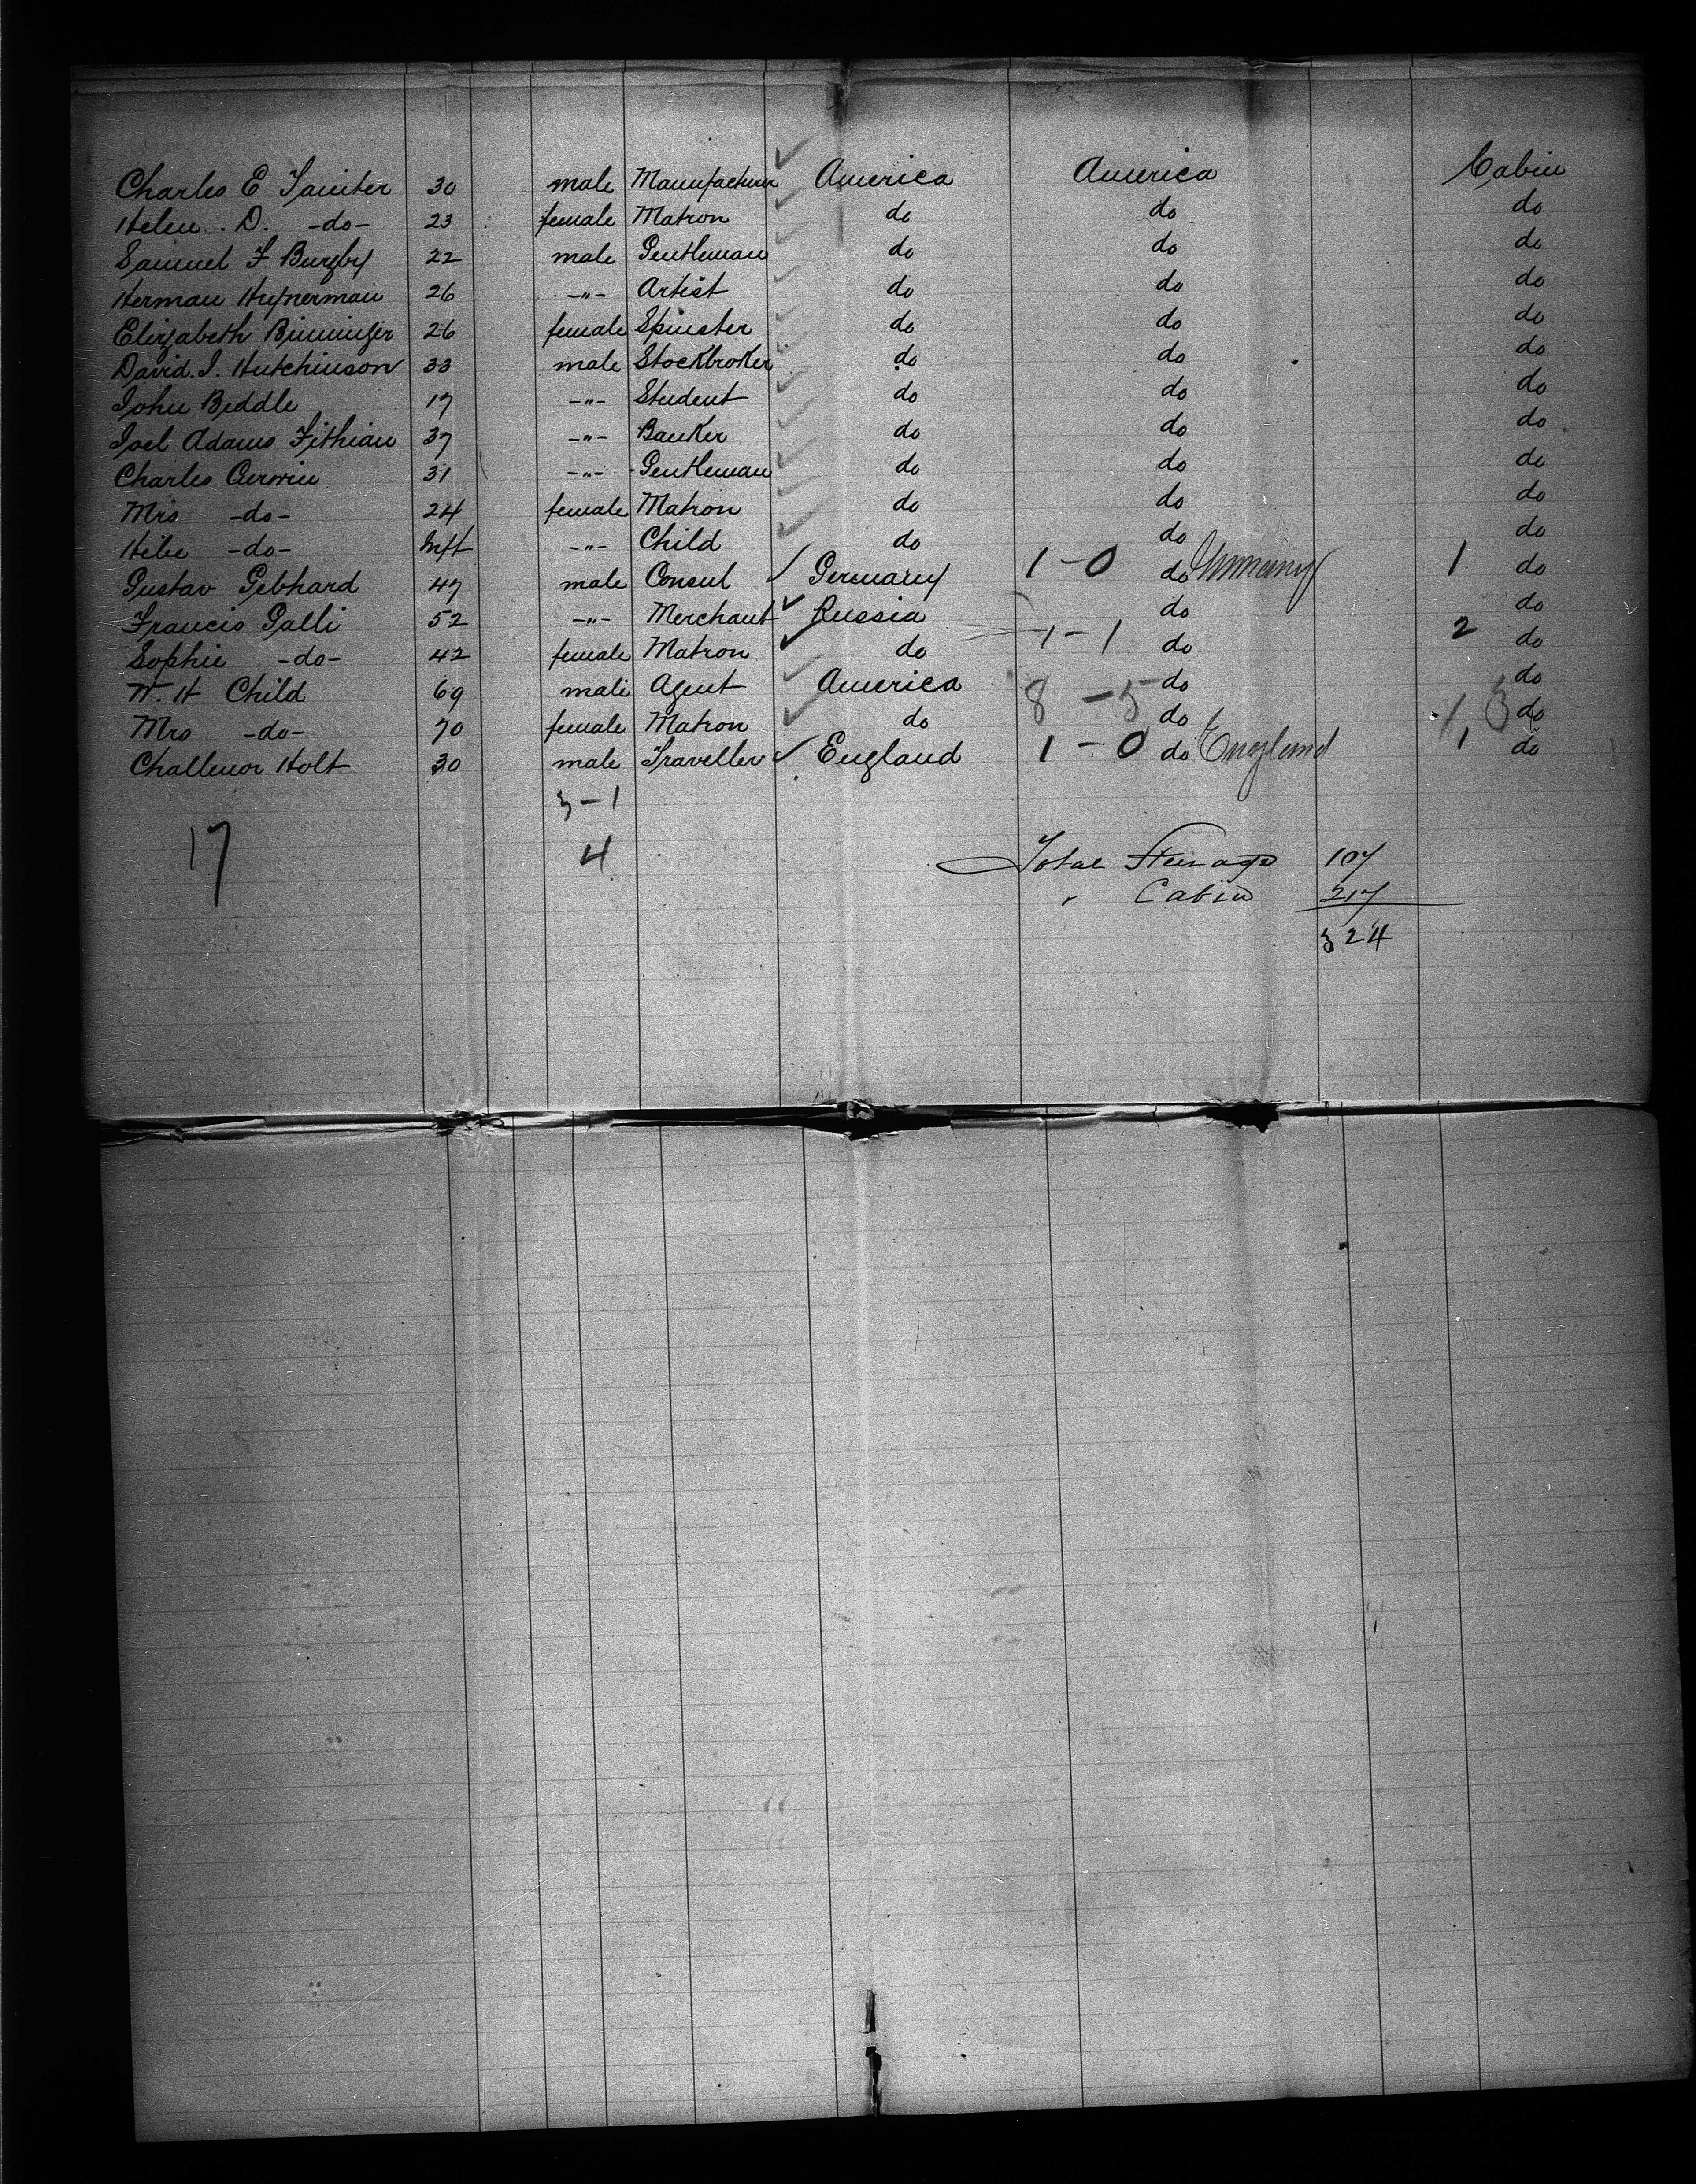 Charles E Tainter 30 male Manufacturer America America Cabin
Helen. D. -do- 23 female Matron do do do
Samuel F. male Gentleman 22 do do do
Herman 26 -"- Artist do do do
Elizabeth 26 female Spinster do do do
David. I. Hutchinson 33 male Stockbroker do do do
John Beddle 17 -"- Student do do do
Joel Adams Fithian 37 -"- Banker do do do
Charles 31 -"- Gentleman do do do
Mrs -do- 24 female Matron do do do
-do- Inft -"- Child do do do
Gustav Gebhard 47 male Consul Germany 1-0 do Germany 1 do
Francis Galli 52 -"- Merchant Russia do do
Sophie -do- 42 female Matron do 1-1 do 2 do
W. H Child 69 male Agent America 8-5 do do
Mrs -do- 70 female Matron do do 13 do
Challenor Holt 30 male Traveller England 1-0 do England 1 do
3-1
17 4 Total Steerage 107
" Cabin 217
324